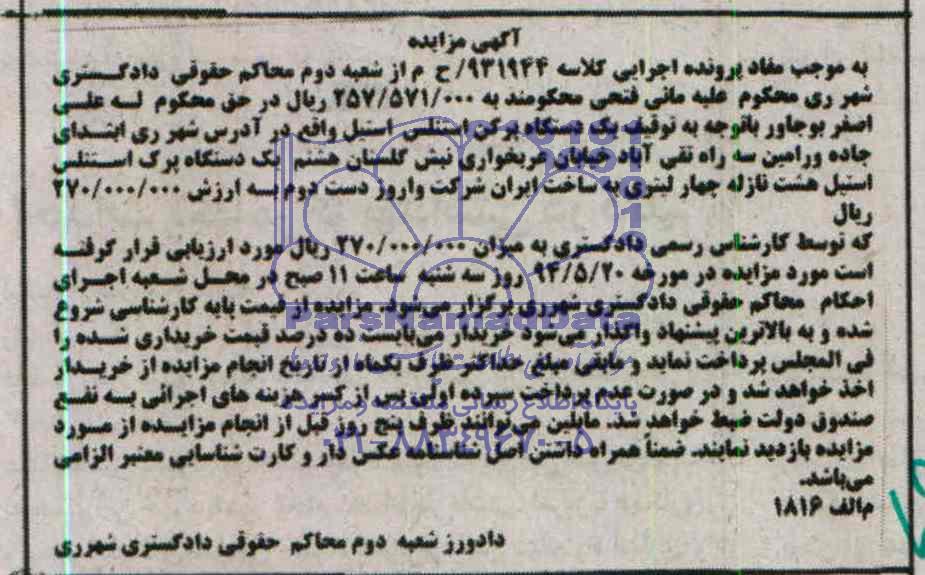 آگهی مزایده
به موجب مفاد پرونده اجرایی کلاسه ۹۳۱۹۴۴/ح م از شعبه دوم محاکم حقوقی دادگستری
شهر ری محکوم علیه مانی فتحی محکومند به ۲۵۷/۵۷۱/۰۰۰ ریال در حق محکوم له علی
اصغر بوجاور باتوجه به توقیف یک دستگاه پرکن استنلس استیل واقع در آدرس شهر ری ابتدای
جاده ورامین سه راه تقی آباد خیابان عربخواری نبش گلستان هشتم یک دستگاه پرک استنلس
استیل هشت نازله چهار لیتری به ساخت ایران شرکت واروژ دست دوم به ارزش ۲۷۰/۰۰۰/۰۰۰
ریال
که توسط کارشناس رسمی دادگستری به میزان ۲۷۰/۰۰۰/۰۰۰ ریال مورد ارزیابی قرار گرفته
است مورد مزایده در مورخه ۹۴/۵/۲۰ روز سه شنبه ساعت ۱۱ صبح در محل شعبه اجرای
احکام محاکم حقوقی دادگستری شهرری برگزار می‌شود. مزایده از قیمت پایه کارشناسی شروع
شده و به بالاترین پیشنهاد واگذار می‌شود خریدار می‌بایست ده درصد قیمت خریداری شده را
فی المجلس پرداخت نماید و مابقی مبلغ حداکثر ظرف یکماه از تاریخ انجام مزایده از خریدار
اخذ خواهد شد و در صورت عدم پرداخت سپرده اولی پس از کسر هزینه های اجرائی به نفع
صندوق دولت ضبط خواهد شد. مایلین می‌توانند ظرف پنج روز قبل از انجام مزایده از مورد
مزایده بازدید نمایند. ضمناً همراه داشتن اصل شناسنامه عکس دار و کارت شناسایی معتبر الزامی
می‌باشد.
م‌الف ۱۸۱۶
دادورز شعبه دوم محاکم حقوقی دادگستری شهرری
ParsNamadData
پایگاه اطلاع رسانی مناقصه و مزایده
۰۲۱-۸۸۳۴۹۶۷۰-۵